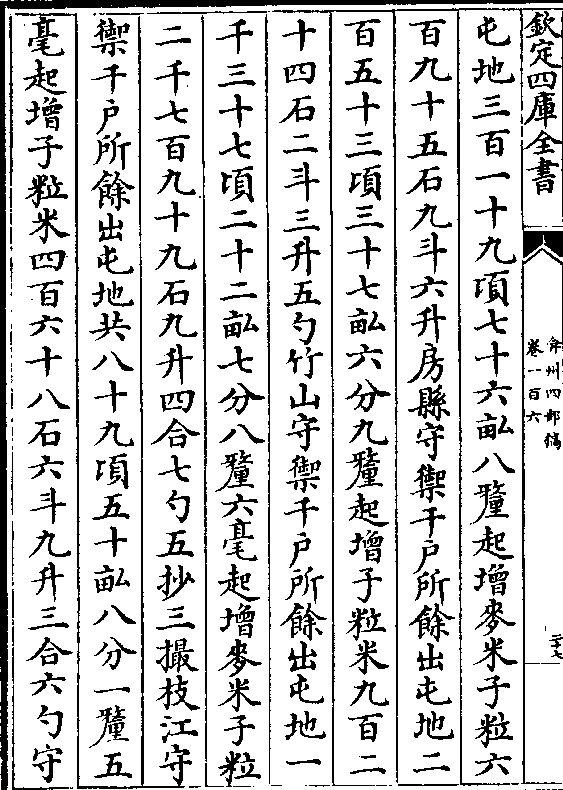 欽定四庫全書
弇州四部稿
卷一百六
二十七
屯地三百一十九頃七十六畝八釐起增麥米子粒六
百九十五石九斗六升房縣守禦千户所餘出屯地二
百五十三頃三十七畝六分九釐起增子粒米九百二
十四石二斗三升五勺竹山守禦千户所餘出屯地一
千三十七頃二十二畝七分八釐六毫起增麥米子粒
二千七百九十九石九升四合七勺五抄三撮枝江守
禦千户所餘出屯地共八十九頃五十畝八分一釐五
毫起增子粒米四百六十八石六斗九升三合六勺守